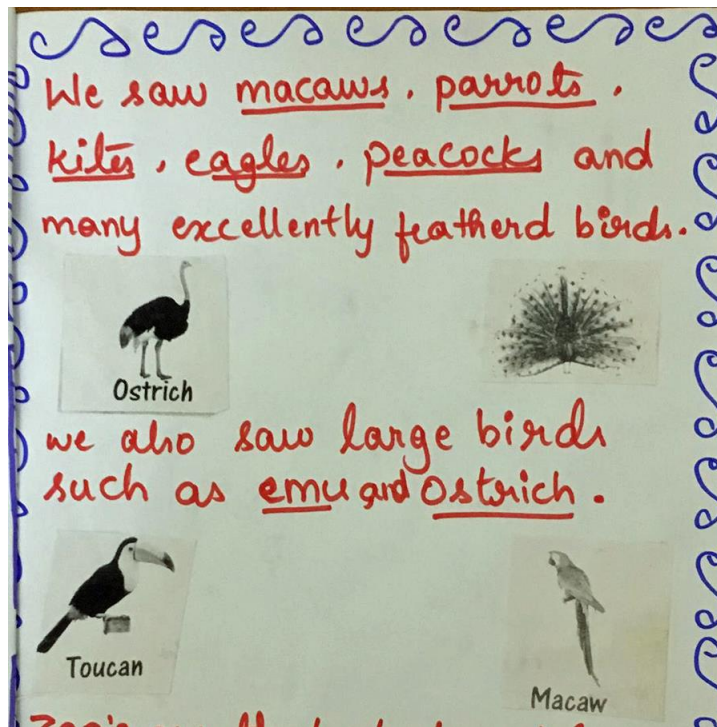 We saw macaws, parrots,
kites, eagles, peacocks and
many excellently featherd birds.
Ostrich
we also saw large birds
such as emu and Ostrich.
Toucan
Macaw